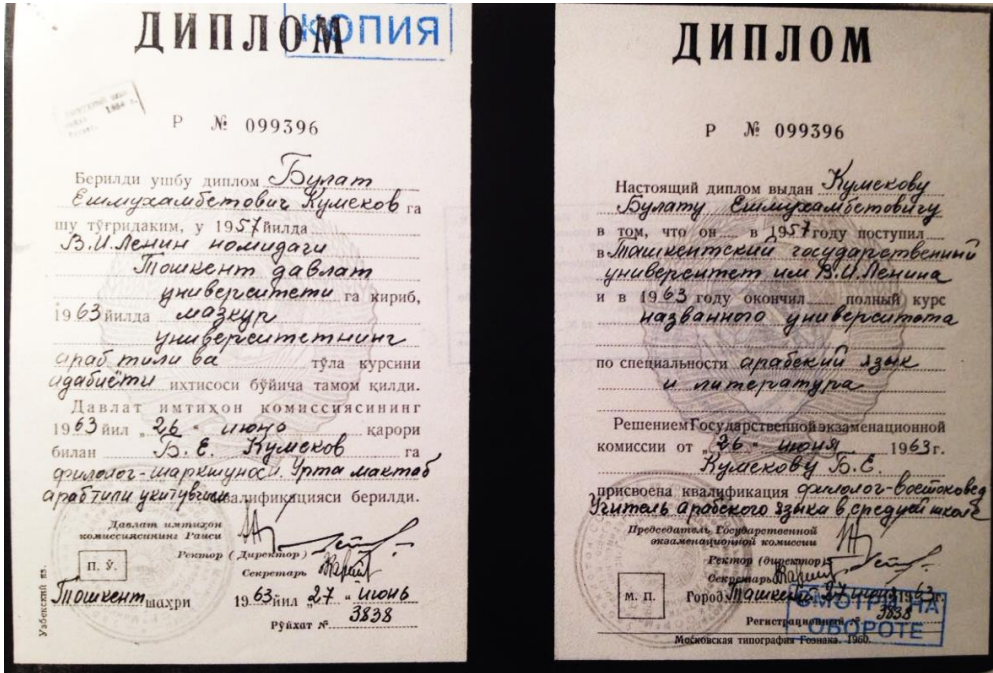 ДИПЛОМ
КОПИЯ
Р № 099396
Берилди ушбу диплом Булат
Ешмухамбетович Кумеков га
шу тўғридаким, у 1957 йилда
В.И.Ленин номидаги
Тошкент давлат
университети га кириб,
1963 йилда мазкур
университетнинг
араб тили ва тўла курсини
адабиёти ихтисоси бўйича тамом қилди.
Давлат имтиҳон комиссиясининг
1963 йил „26“ июнь қарори
билан Б. Е. Кумеков га
филолог-шарқшунос. Урта мактаб
араб тили укитувчиси квалификацияси берилди.
Давлат имтиҳон
комиссиясининг Раиси
Ректор (Директор)
Секретарь
П. Ў.
Тошкент шаҳри 1963 йил „27“ июнь
Рўйхат № 3838
Узбекский яз.
ДИПЛОМ
Р № 099396
Настоящий диплом выдан Кумекову
Булату Ешмухамбетовичу
в том, что он в 1957 году поступил
в Ташкентский государственный
университет им В.И.Ленина
и в 1963 году окончил полный курс
названного университета
по специальности арабский язык
и литература
Решением Государственной экзаменационной
комиссии от „26“ июня 1963 г.
Кумекову Б.Е.
присвоена квалификация филолог-востоковед
Учитель арабского языка в средней школе
Председатель Государственной
экзаменационной комиссии
Ректор (директор)
Секретарь
М. П.
Город Ташкент 27 июня 1963 г.
Регистрационный № 3838
СМОТРИ НА
ОБОРОТЕ
Московская типография Гознака. 1960.